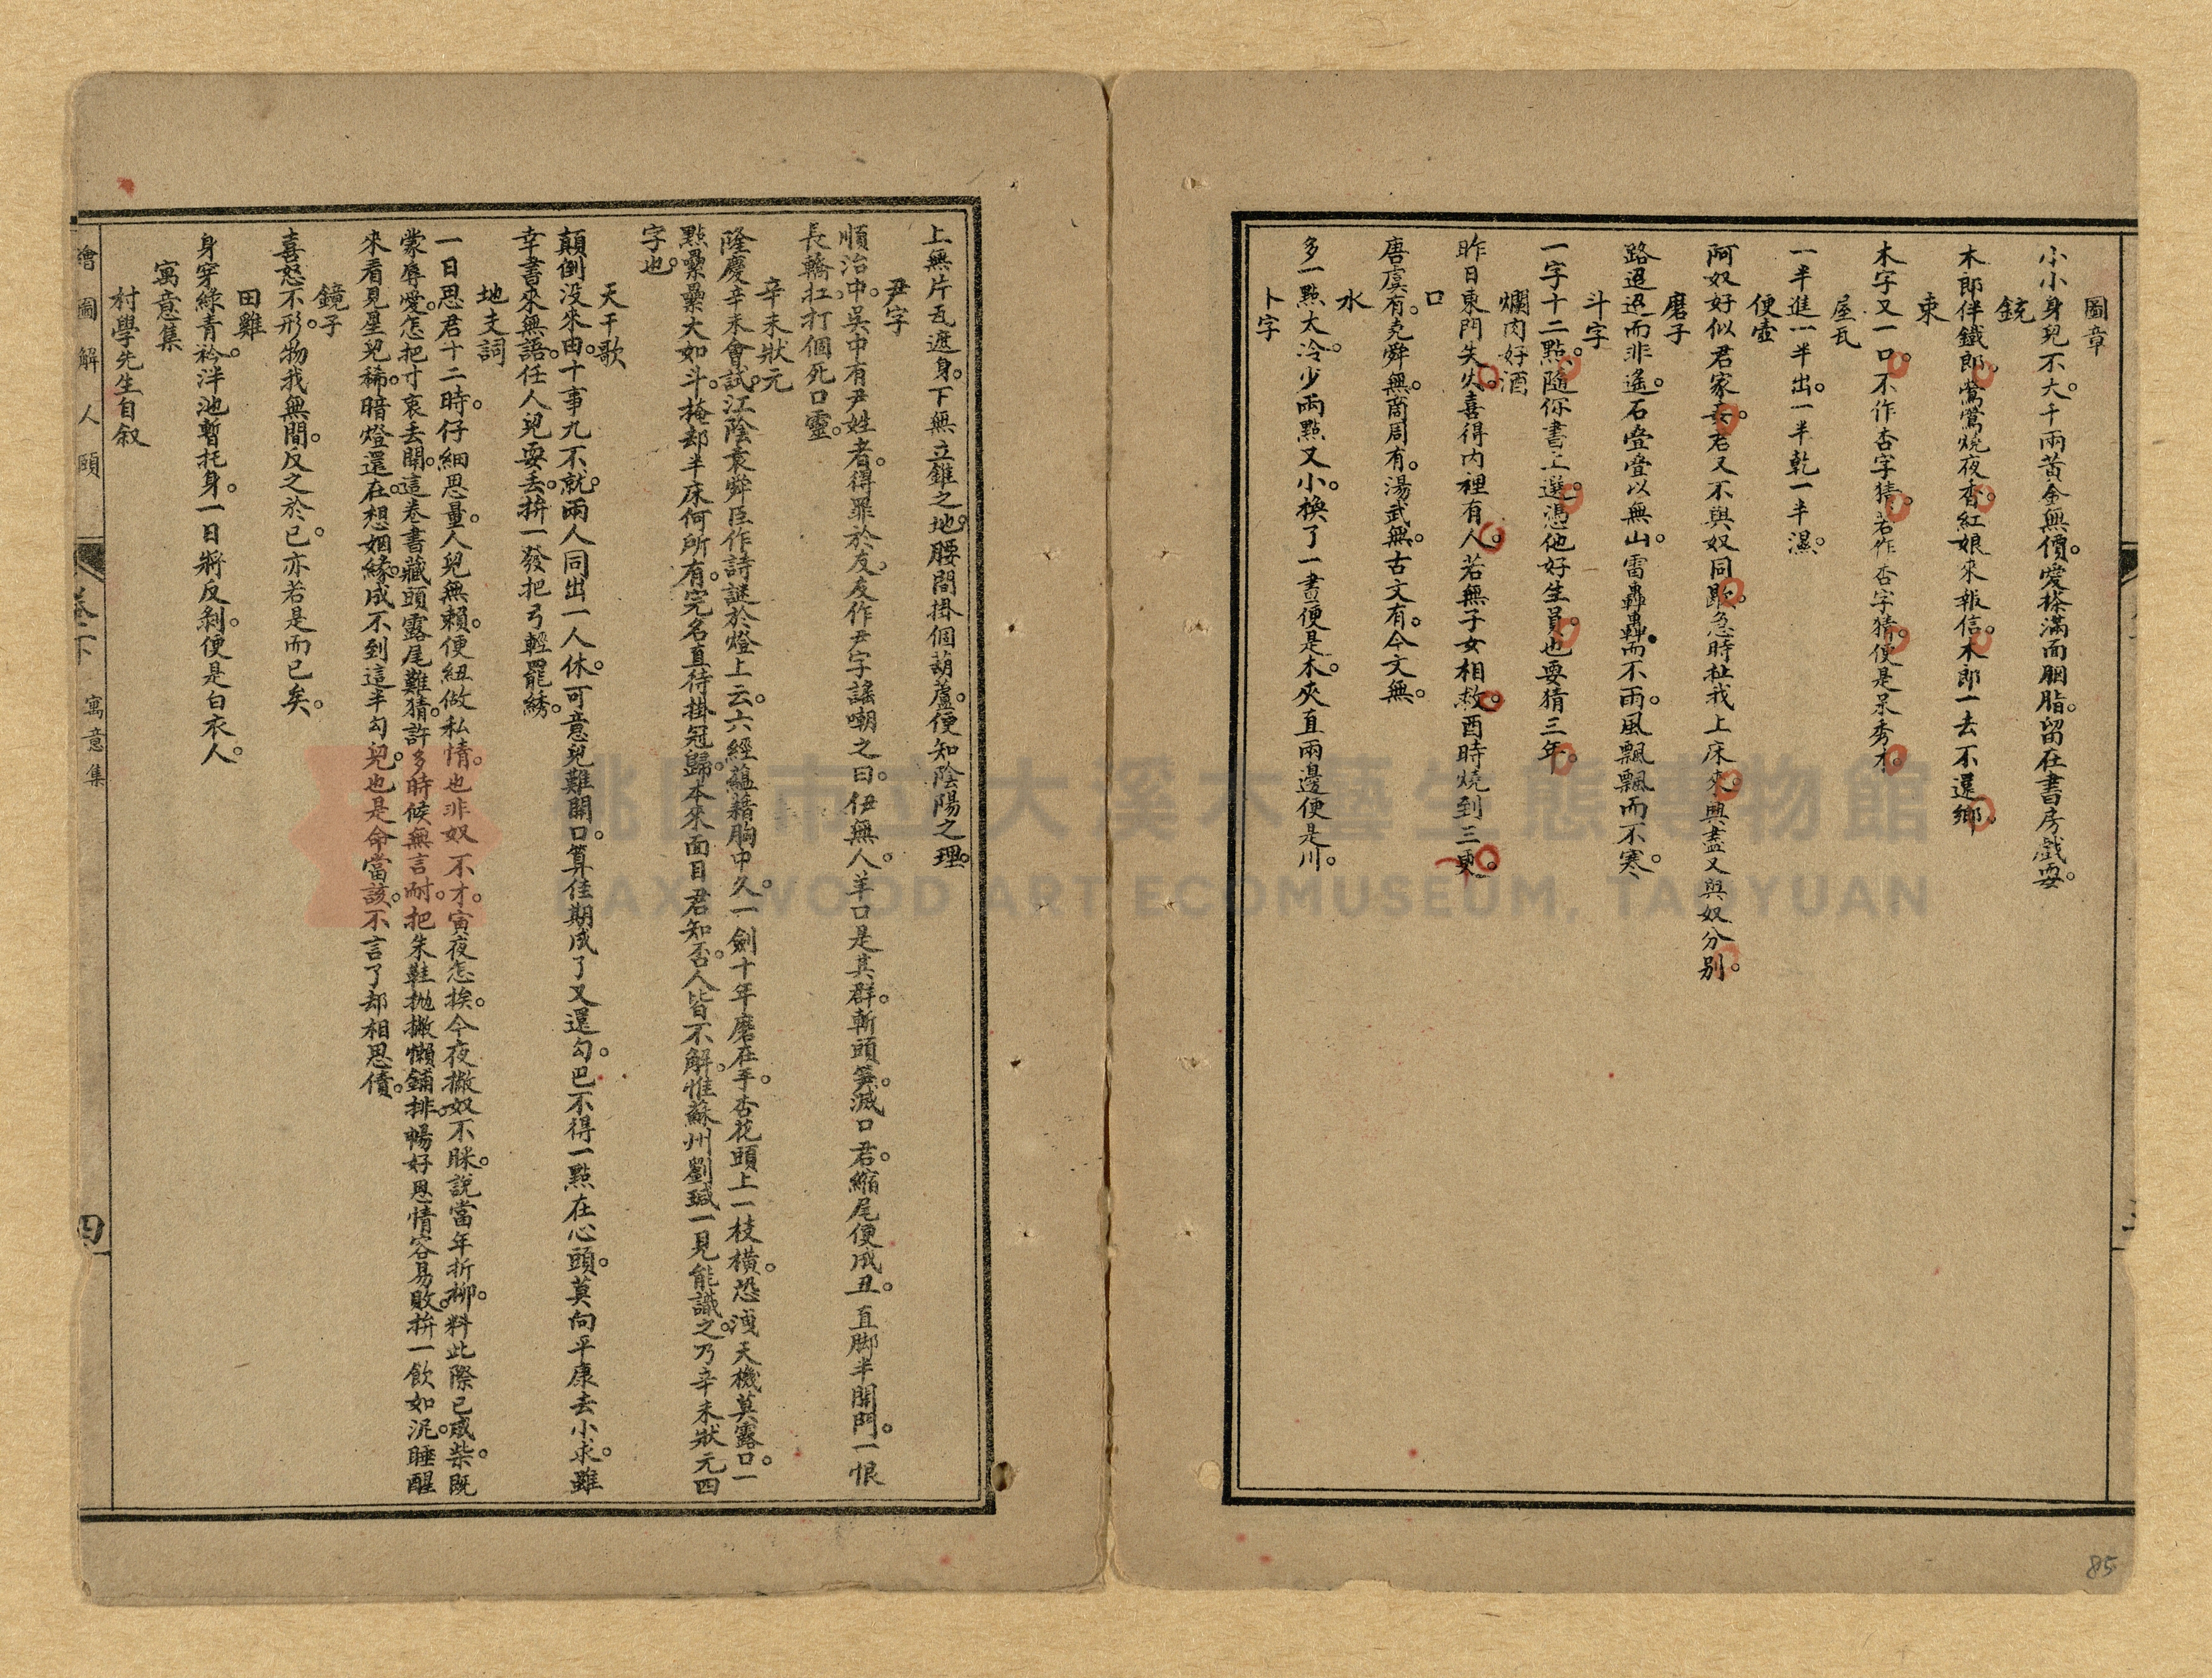 圖章
小小身兒不大。千兩黃金無價。愛搽滿面胭脂。留在書房戲耍。
銃
木郎伴鐵郎。鶯鶯燒夜香。紅娘來報信。木郎一去不還鄉。
束
木字又一口。不作杏字猜。若作杏字猜。便是呆秀才。
屋瓦
一半進一半出。一半乾一半濕。
便壺
阿奴好似君家妾。君又不與奴同歇。急時扯我上床來。興盡又與奴分別。
磨子
路迢迢而非遙。石疊疊以無山。雷轟轟而不雨。風飄飄而不寒。
斗字
一字十二點。隨你書上選。憑他好生員。也要猜三年。
爛肉好酒
昨日東門失火。喜得內裡有人。若無子女相救。酉時燒到三更。
口
唐虞有。堯舜無。商周有。湯武無。古文有。今文無。
水
多一點太冷。少兩點又小。換了一畫便是木。夾直兩邊便是川。
卜字
上無片瓦遮身。下無立錐之地。腰間掛個葫蘆。便知陰陽之理。
尹字
順治中。吳中有尹姓者。得罪於友。友作尹字謠嘲之曰。伊無人。羊口是其群。斬頭笋。滅口君。縮尾便成丑。直脚半開門。一恨
長轎扛。打個死口靈。
辛未狀元
隆慶辛未會試。江陰袁舜臣作詩謎於燈上云。六經蘊藉胸中久。一劍十年磨在手。杏花頭上一枝橫。恐洩天機莫露口。一
點纍纍大如斗。掩却半床何所有。完名直待掛冠歸。本來面目君知否。人皆不解。惟蘇州劉瑊一見能識之。乃辛未狀元四
字也。
天干歌
顛倒没來由。十事九不就。兩人同出一人休。可意兒難開口。算佳期成了又還勾。巴不得一點在心頭。莫向平康去小求。雖
幸書來無語。任人兒耍丟。拚一發把弓輕罷綉。
地支詞
一日思君十二時。仔細思量。人兒無賴。便紐做私情。也非奴不才。寅夜怎挨。今夜撇奴不睬。說當年折柳。料此際已成柴。既
蒙辱愛。怎把寸衷去開。這卷書藏頭露尾難猜。許多時候無言耐。把朱鞋拋撇懶鋪排。暢好恩情容易敗。拚一飲如泥。睡醒
來看見星兒稀。暗燈還在。想姻緣成不到這半勾兒。也是命當該。不言了却相思債。
鏡子
喜怒不形。物我無間。反之於己。亦若是而已矣。
田雞
身穿綠青衿。泮池暫托身。一日將反剝。便是白衣人。
寓意集
村學先生自叙
繪圖解人頤
卷下
寓意集
四
85
桃園市立大溪木藝生態博物館
DAXI WOOD ART ECOMUSEUM, TAOYUAN